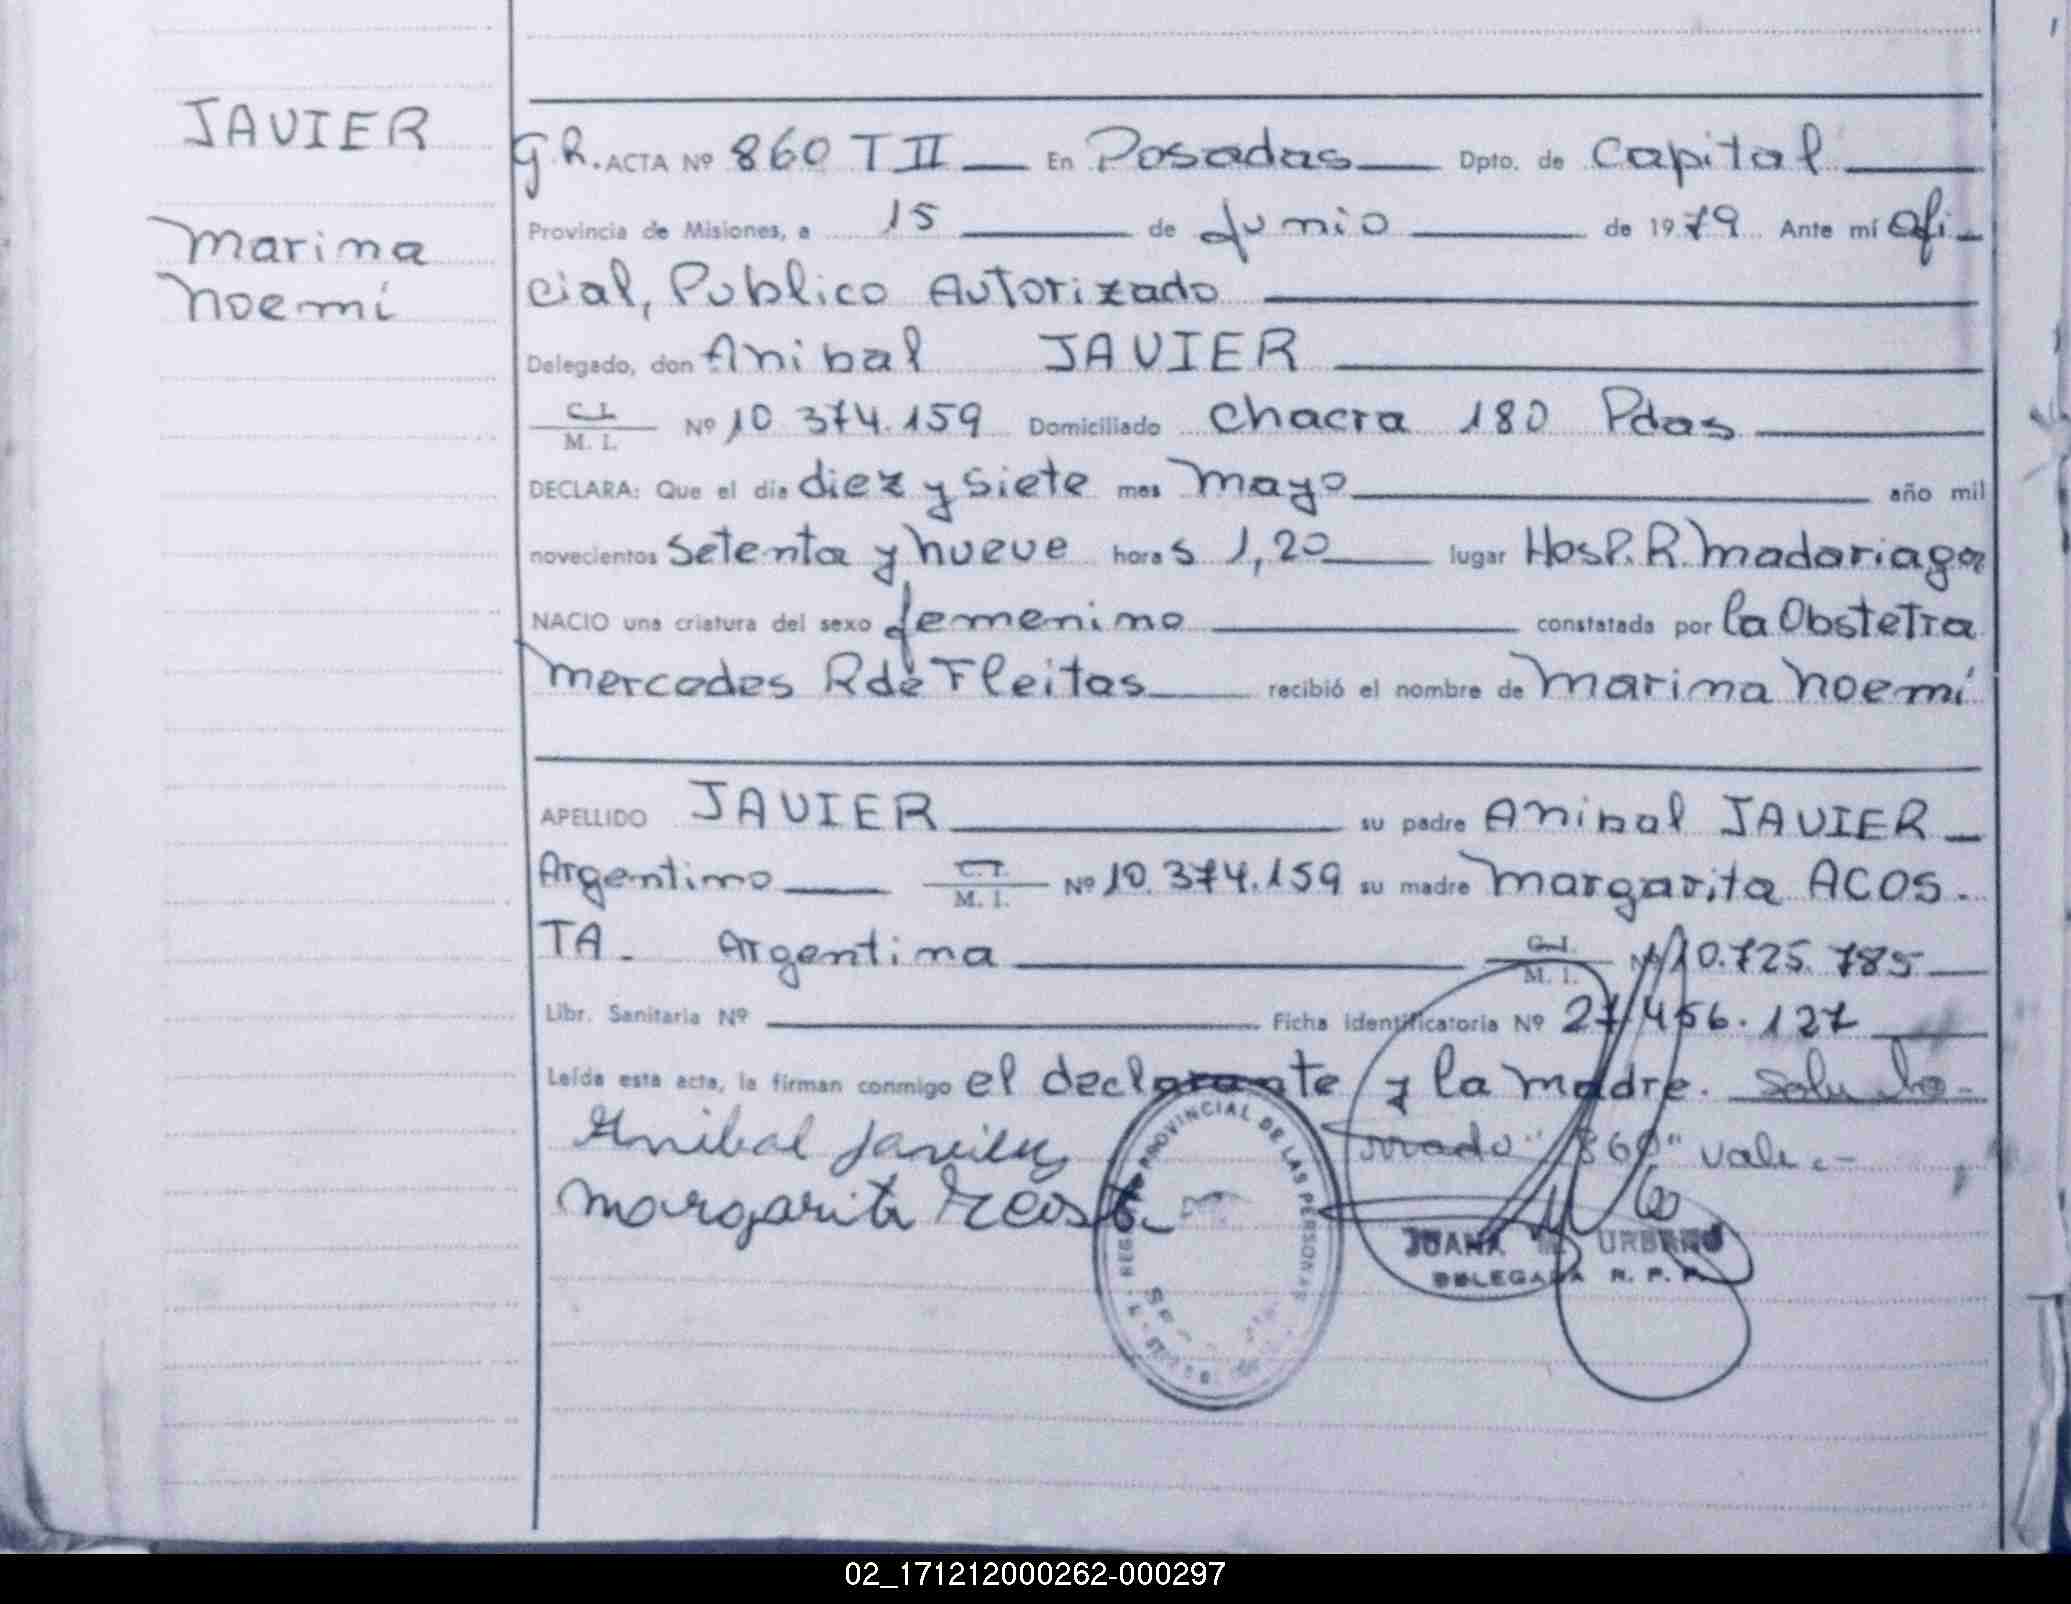 JAVIER
Marina
Noemí
G.R. ACTA Nº 860 T II En Posadas Dpto. de Capital
Provincia de Misiones, a 15 de Junio de 1979 Ante mí Ofi-
cial, Publico Autorizado
Delegado, don Anibal JAVIER
C. I.
M. I. Nº 10.374.159 Domiciliado Chacra 180 Pdas
DECLARA: Que el día diez y siete mes Mayo año mil
novecientos Setenta y nueve horas 1,20 lugar Hosp. R. Madariaga
NACIO una criatura del sexo femenino constatada por la Obstetra
Mercedes R de Fleitas recibió el nombre de Marina Noemí
APELLIDO JAVIER su padre Anibal JAVIER
Argentino C. I.
M. I. Nº 10.374.159 su madre Margarita ACOS-
TA. Argentina C. I.
M. I. Nº 10.725.785
Libr. Sanitaria Nº Ficha Identificatoria Nº 27.456.127
Leída esta acta, la firman conmigo el declarante y la madre.
"860" vale.-
Anibal Javier
Margarita Acosta
PROVINCIAL DE LAS PERSONAS
JUANA URBANO
DELEGADA R. P. P.
02_171212000262-000297